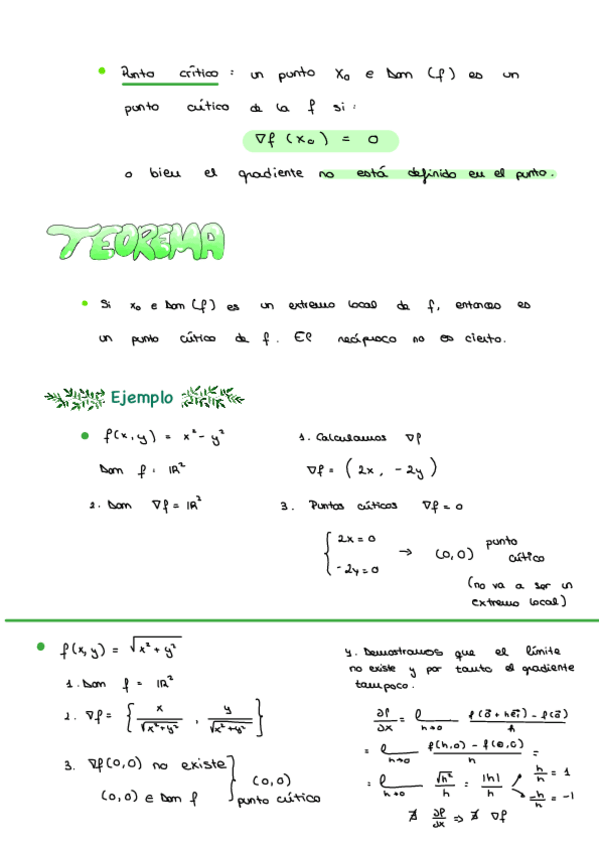 Punto crítico : un punto x₀ e Dom (f) es un
punto crítico de la f si :
∇f (x₀) = 0
o bien el gradiente no está definido en el punto.
TEOREMA
Si x₀ e Dom (f) es un extremo local de f, entonces es
un punto crítico de f. El recíproco no es cierto.
Ejemplo
f(x,y) = x² - y²
Dom f : ℝ²
1. Calculamos ∇f
∇f = (2x, -2y)
2. Dom ∇f = ℝ²
3. Puntos críticos ∇f = 0
{ 2x = 0
-2y = 0
→ (0,0) punto crítico
(no va a ser un
extremo local)
f(x,y) = √x² + y²
1. Dom f = ℝ²
2. ∇f = { x/√x²+y² , y/√x²+y² }
3. ∇f(0,0) no existe
(0,0) e Dom f
} (0,0)
punto crítico
4. Demostramos que el límite
no existe y por tanto el gradiente
tampoco.
∂f/∂x = l___ h→0 f(ō + hēi) - f(ō) / h
= l___ h→0 f(h,0) - f(0,0) / h =
= l___ h→0 √h² / h = |h| / h
h/h = 1
-h/h = -1
∄ ∂f/∂x => ∄ ∇f